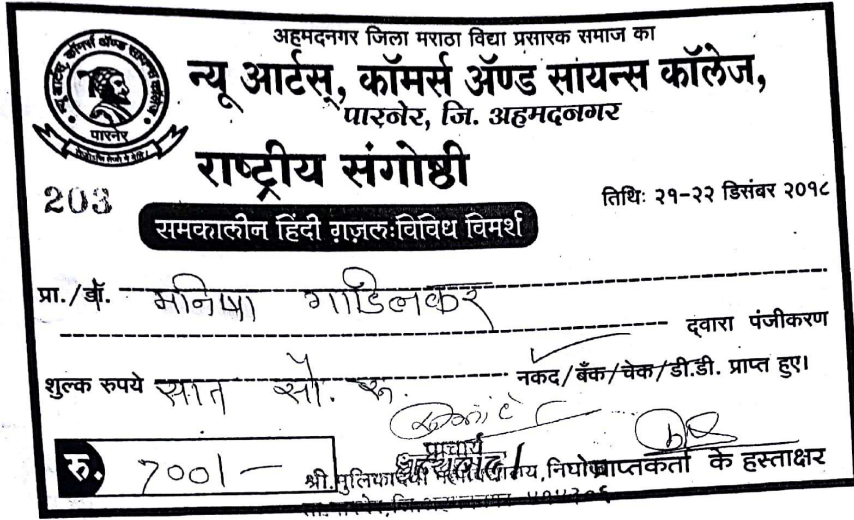 अहमदनगर जिला मराठा विद्या प्रसारक समाज का
न्यू आर्टस्, कॉमर्स ॲण्ड सायन्स कॉलेज,
पारनेर, जि. अहमदनगर
न्यू आर्टस्, कॉमर्स ॲण्ड सायन्स कॉलेज
पारनेर
राष्ट्रीय संगोष्ठी
203
तिथिः २१-२२ डिसंबर २०१८
समकालीन हिंदी ग़ज़लःविविध विमर्श
प्रा./डॉ. मनिषा गाडिलकर
द्वारा पंजीकरण
शुल्क रुपये सात सौ. रु. नकद/बँक/चेक/डी.डी. प्राप्त हुए।
रु. 700/-
प्राचार्य
श्री.मुलिकादेवी महाविद्यालय,निघोज
प्राप्तकर्ता के हस्ताक्षर